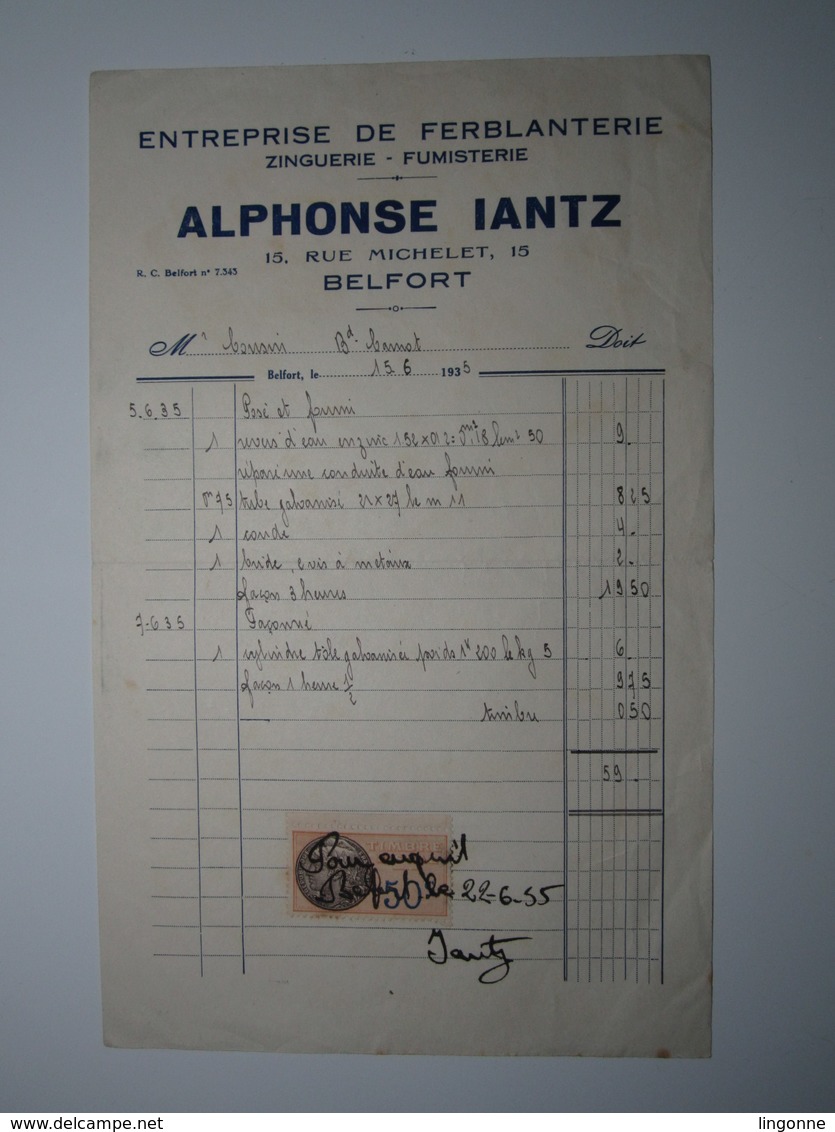 ENTREPRISE DE FERBLANTERIE
ZINGUERIE - FUMISTERIE
ALPHONSE IANTZ
15, RUE MICHELET, 15
R. C. Belfort n° 7.343
BELFORT
Mr Bd. Carnot Doit
Belfort, le 15 6 1935
5.6.35 Posé et fourni
1 revers d'eau en zinc 152 x 012 = 0m²18 le m² 50 9.
réparé une conduite d'eau fourni
0m75 tube galvanisé 21 x 27 le m 11 825
1 coude 4.
1 bride, 2 vis à métaux 2.
façon 3 heures 1950
7-6.35 Façonné
1 cylindre tôle galvanisée poids 1k200 le kg 5 6.
façon 1 heure 1/2 975
timbre 050
59.
TIMBRE
50
Pour acquit
Belfort le 22-6-35
Iantz
www.delcampe.net
lingonne